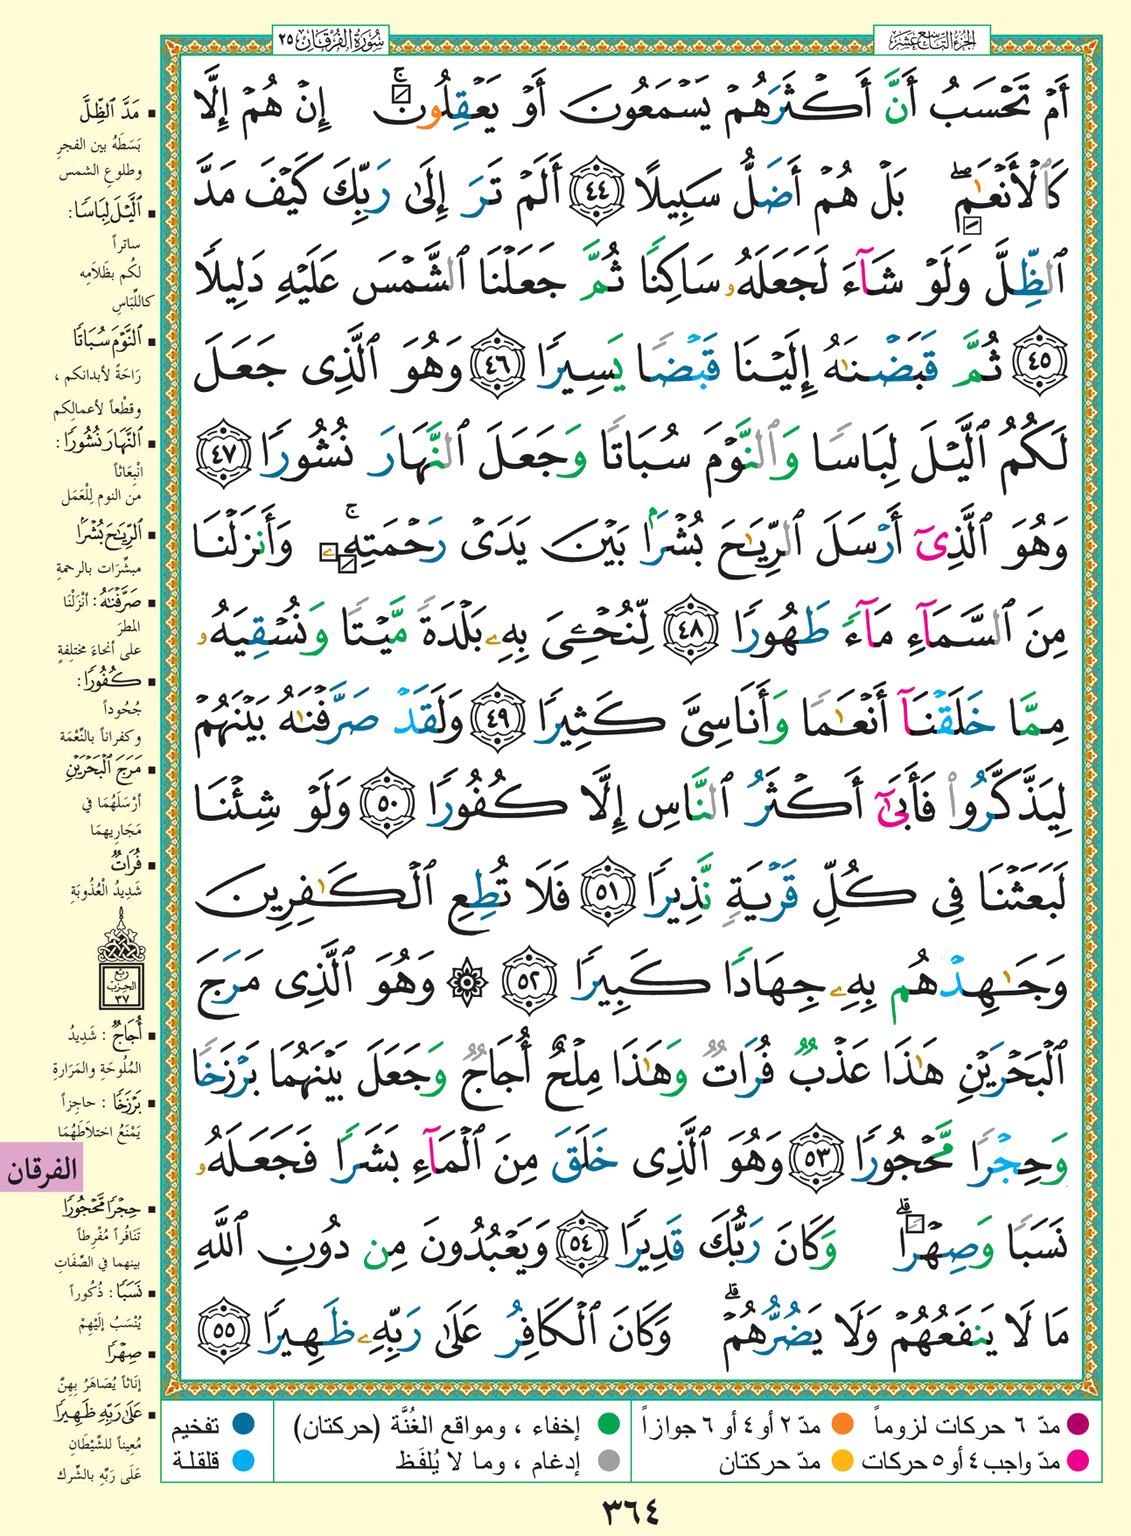 الجزء التاسع عشر
سُورَةُ الفُرْقَان ٢٥
أَمْ تَحْسَبُ أَنَّ أَكْثَرَهُمْ يَسْمَعُونَ أَوْ يَعْقِلُونَ ۚ إِنْ هُمْ إِلَّا
كَالْأَنْعَٰمِ ۖ بَلْ هُمْ أَضَلُّ سَبِيلًا ٤٤ أَلَمْ تَرَ إِلَىٰ رَبِّكَ كَيْفَ مَدَّ
ٱلظِّلَّ وَلَوْ شَآءَ لَجَعَلَهُۥ سَاكِنًا ثُمَّ جَعَلْنَا ٱلشَّمْسَ عَلَيْهِ دَلِيلًا
٤٥ ثُمَّ قَبَضْنَٰهُ إِلَيْنَا قَبْضًا يَسِيرًا ٤٦ وَهُوَ ٱلَّذِى جَعَلَ
لَكُمُ ٱلَّيْلَ لِبَاسًا وَٱلنَّوْمَ سُبَاتًا وَجَعَلَ ٱلنَّهَارَ نُشُورًا ٤٧
وَهُوَ ٱلَّذِىٓ أَرْسَلَ ٱلرِّيَٰحَ بُشْرًۢا بَيْنَ يَدَىْ رَحْمَتِهِۦ ۚ وَأَنزَلْنَا
مِنَ ٱلسَّمَآءِ مَآءً طَهُورًا ٤٨ لِّنُحْۦِىَ بِهِۦ بَلْدَةً مَّيْتًا وَنُسْقِيَهُۥ
مِمَّا خَلَقْنَآ أَنْعَٰمًا وَأَنَاسِىَّ كَثِيرًا ٤٩ وَلَقَدْ صَرَّفْنَٰهُ بَيْنَهُمْ
لِيَذَّكَّرُوا۟ فَأَبَىٰٓ أَكْثَرُ ٱلنَّاسِ إِلَّا كُفُورًا ٥٠ وَلَوْ شِئْنَا
لَبَعَثْنَا فِى كُلِّ قَرْيَةٍ نَّذِيرًا ٥١ فَلَا تُطِعِ ٱلْكَٰفِرِينَ
وَجَٰهِدْهُم بِهِۦ جِهَادًا كَبِيرًا ٥٢ ۞ وَهُوَ ٱلَّذِى مَرَجَ
ٱلْبَحْرَيْنِ هَٰذَا عَذْبٌ فُرَاتٌ وَهَٰذَا مِلْحٌ أُجَاجٌ وَجَعَلَ بَيْنَهُمَا بَرْزَخًا
وَحِجْرًا مَّحْجُورًا ٥٣ وَهُوَ ٱلَّذِى خَلَقَ مِنَ ٱلْمَآءِ بَشَرًا فَجَعَلَهُۥ
نَسَبًا وَصِهْرًا ۗ وَكَانَ رَبُّكَ قَدِيرًا ٥٤ وَيَعْبُدُونَ مِن دُونِ ٱللَّهِ
مَا لَا يَنفَعُهُمْ وَلَا يَضُرُّهُمْ ۗ وَكَانَ ٱلْكَافِرُ عَلَىٰ رَبِّهِۦ ظَهِيرًا ٥٥
مَدَّ ٱلظِّلَّ
بَسَطَهُ بين الفجرِ
وطلوع الشمس
ٱلَّيْلَ لِبَاسًا :
ساتراً
لكُم بظَلامِه
كاللِّبَاسِ
ٱلنَّوْمَ سُبَاتًا
رَاحَةً لأبدانكم ،
وقطْعاً لأعمالِكم
ٱلنَّهَارَ نُشُورًا :
انْبِعَاثاً
من النوم لِلْعَمَل
ٱلرِّيَٰحَ بُشْرًا
مبشِّرات بالرحمةِ
صَرَّفْنَٰهُ : أَنْزَلْنَا
المطرَ
على أنحاءَ مختلِفةٍ
كُفُورًا :
جُحُوداً
وكفراناً بالنِّعْمَة
مَرَجَ ٱلْبَحْرَيْنِ
أَرْسَلَهُمَا في
مَجَارِيهمَا
فُرَاتٌ
شَدِيدُ الْعُذُوبَةِ
ربع
الحزب
٣٧
أُجَاجٌ : شَدِيدُ
المُلُوحَةِ والمَرَارةِ
بَرْزَخًا : حاجِزاً
يَمْنَعُ اختلاَطَهُمَا
الفرقان
حِجْرًا مَّحْجُورًا
تَنَافُراً مُفْرِطاً
بينهما في الصِّفَاتِ
نَسَبًا : ذُكُوراً
يُنْسَبُ إلَيْهِمْ
صِهْرًا
إنَاثاً يُصَاهَرُ بِهِنَّ
عَلَىٰ رَبِّهِ ظَهِيرًا
مُعِيناً للشَّيْطَانِ
عَلَى رَبِّهِ بالشِّرك
مدّ ٦ حركات لزوماً
مدّ ٢ أو ٤ أو ٦ جوازاً
إخفاء ، ومواقع الغُنَّة (حركتان)
تفخيم
مدّ واجب ٤ أو ٥ حركات
مدّ حركتان
إدغام ، وما لا يُلفَظ
قلقلة
٣٦٤